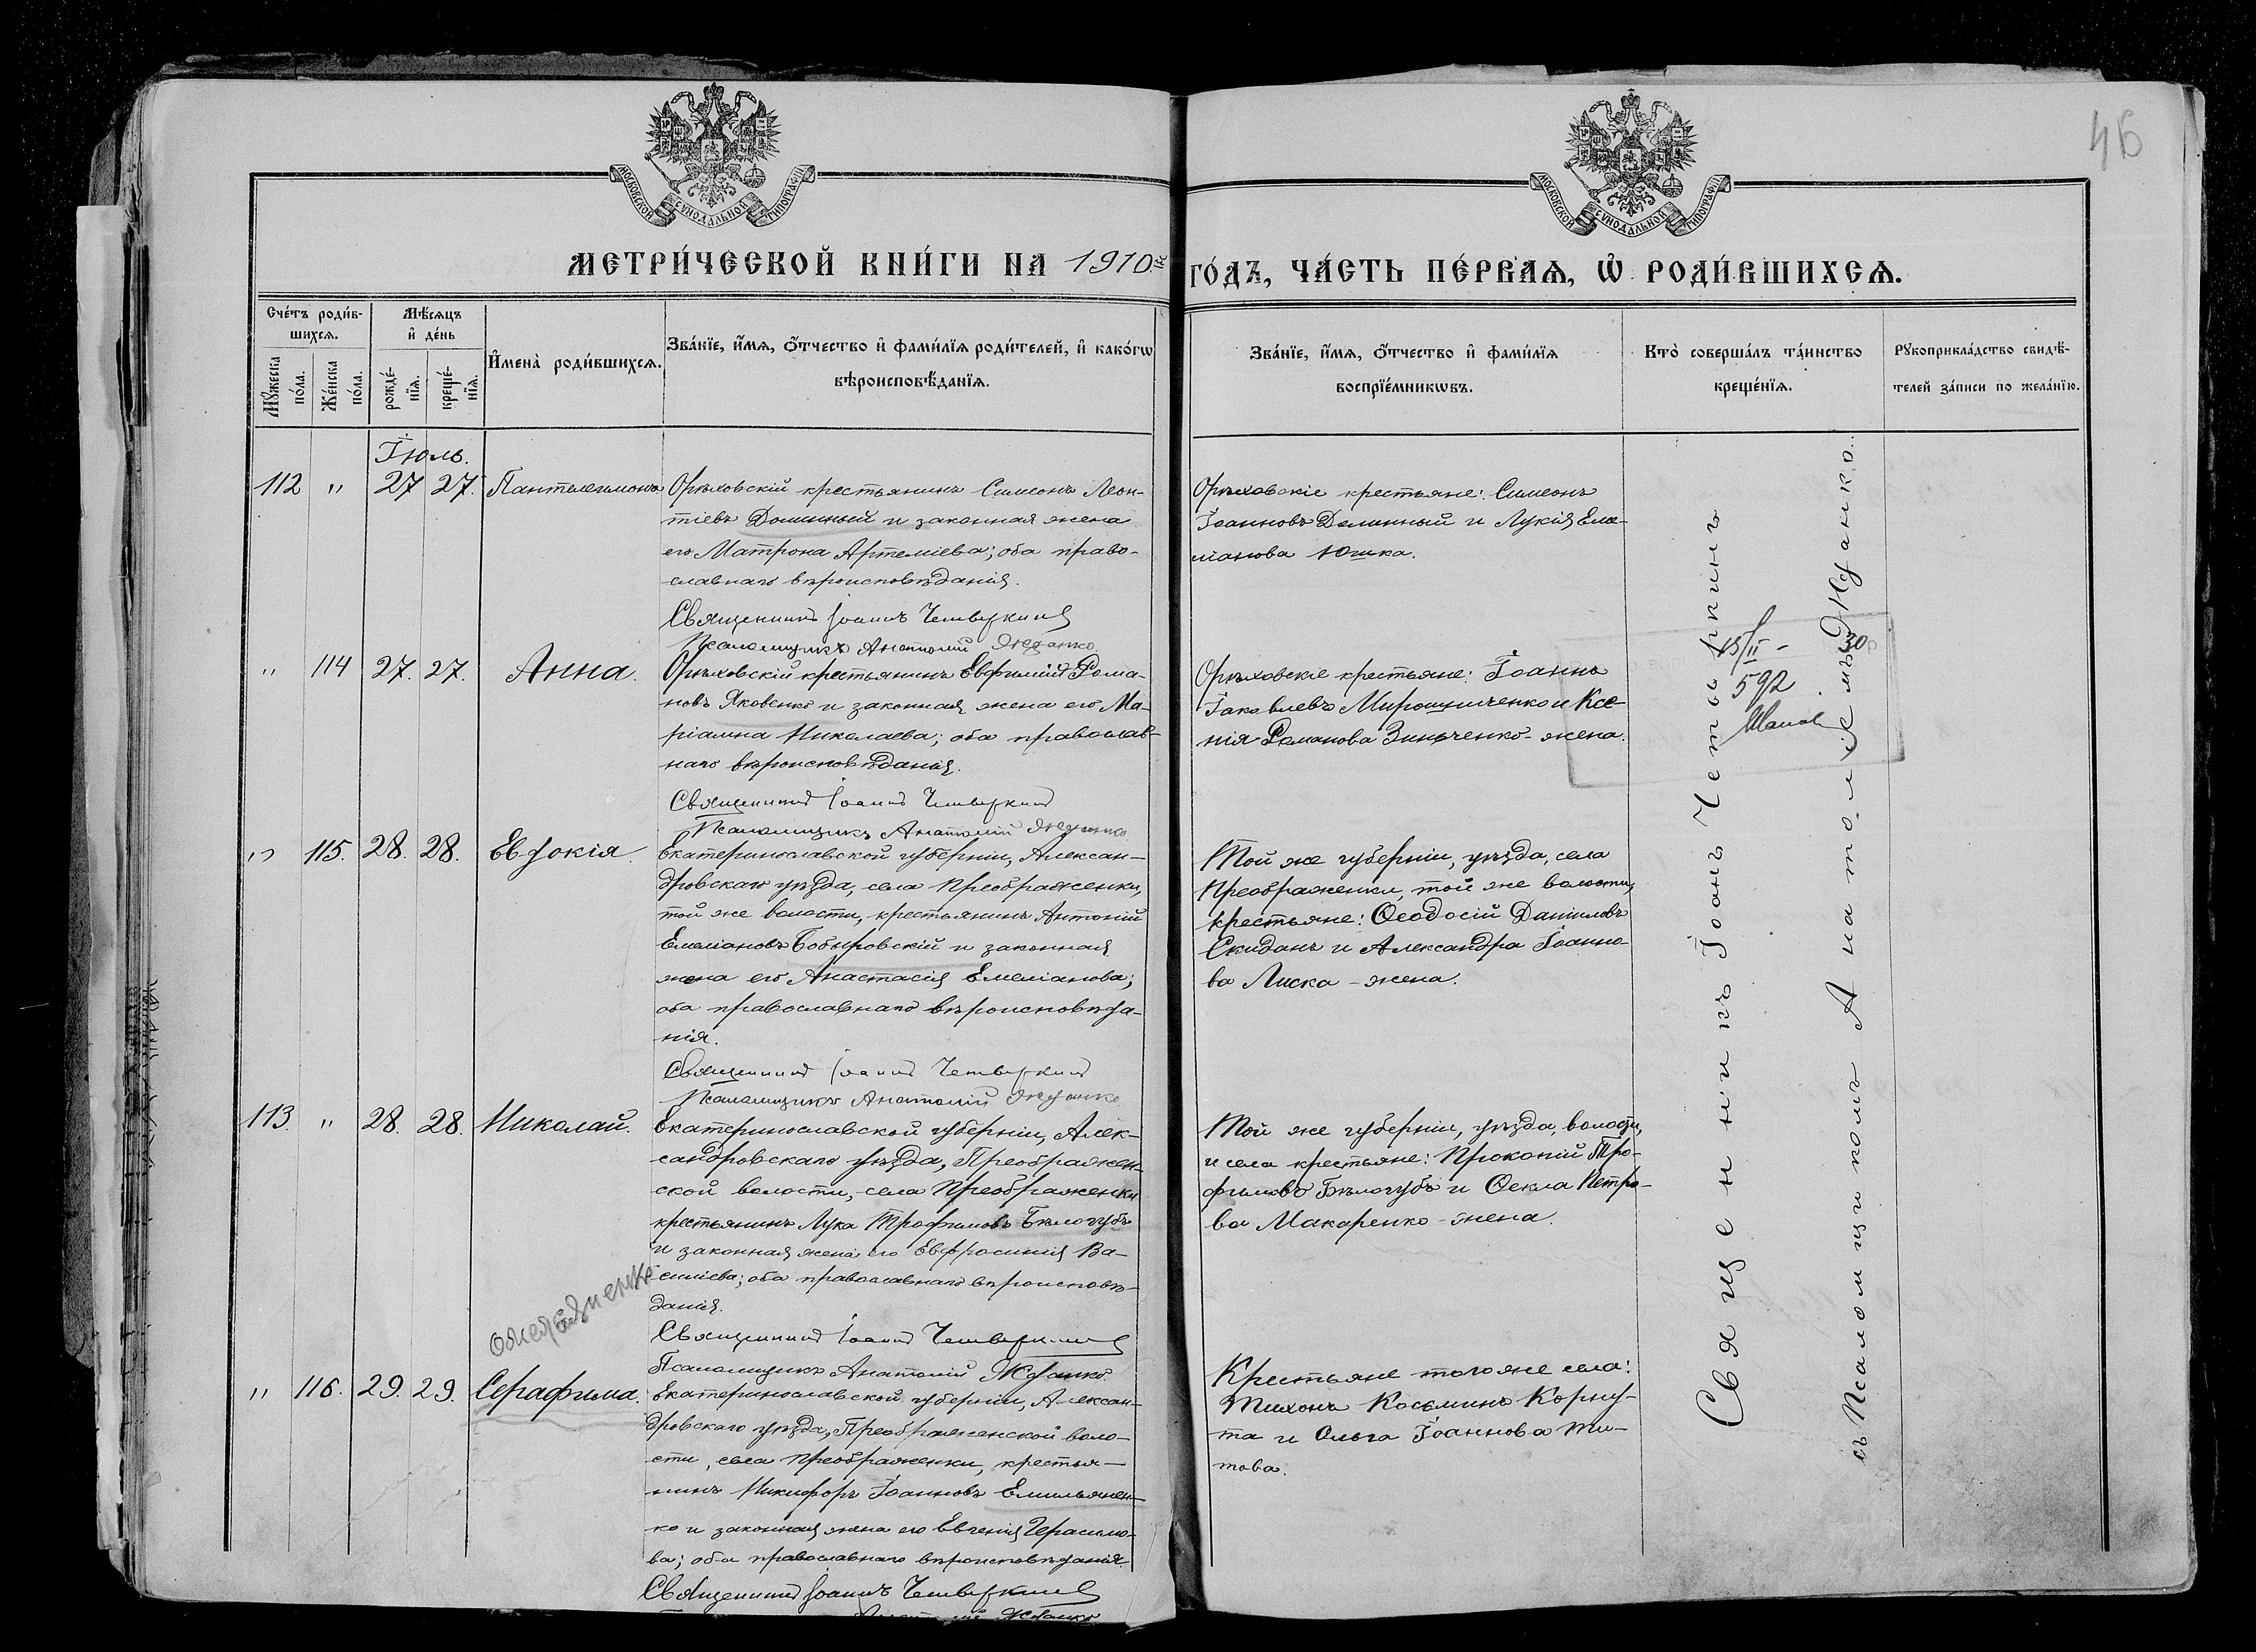 46
МОСКОВСКОЙ СѴНОДАЛЬНОЙ ТИПОГРАФІИ
МОСКОВСКОЙ СѴНОДАЛЬНОЙ ТИПОГРАФІИ
МЕТРИ́ЧЕСКОЙ КНИ́ГИ НА 1910й
ГО́ДЪ, ЧА́СТЬ ПЕ́РВАѦ, Ѡ҆ РОДИ́ВШИХСѦ.
Сче́тъ роди́в-
шихсѧ.
Мꙋ́жеска
по́ла.
Же́нска
по́ла.
Мѣ́сѧцъ
и҆ де́нь
рожде́-
нїѧ.
креще́-
нїѧ.
И҆мена̀ роди́вшихсѧ.
Зва́нїе, и҆́мѧ, ѻ҆́тчество и҆ фами́лїѧ роди́телей, и҆ како́гѡ
вѣроисповѣ́данїѧ.
Зва́нїе, и҆́мѧ, ѻ҆́тчество и҆ фами́лїѧ
воспрїе́мникѡвъ.
Кто̀ соверша́лъ та́инство
креще́нїѧ.
Рꙋкоприкла́дство свидѣ́-
телей за́писи по жела́нїю.
Іюль.
112 " 27 27. Пантелеимонъ
Орѣховскій крестьянинъ Симеонъ Леон-
тіевъ Долинный и законная жена
его Матрона Артеміева; оба право-
славнаго вѣроисповѣданія.
Священникъ Іоаннъ Четверкинъ
Псаломщикъ Анатолій Жданко
Орѣховскіе крестьяне: Симеонъ
Іоанновъ Долинный и Лукія Еме-
ліанова Юшка.
" 114 27. 27. Анна.
Орѣховскій крестьянинъ Евфимій Рома-
новъ Яковенко и законная жена его Ма-
ріамна Николаева; оба православ-
наго вѣроисповѣданія.
Священникъ Іоаннъ Четверкинъ
Псаломщикъ Анатолій Жданко
Орѣховскіе крестьяне: Іоаннъ
Іаковлевъ Мирошниченко и Ксе-
нія Романова Зинченко - жена.
" 115. 28. 28. Евдокія.
Екатеринославской губерніи, Алексан-
дровскаго уѣзда, села Преображенки,
той же волости, крестьянинъ Антоній
Емеліановъ Бобыровскій и законная
жена его Анастасія Емеліанова;
оба православнаго вѣроисповѣда-
нія.
Священникъ Іоаннъ Четверкинъ
Псаломщикъ Анатолій Жданко
Той же губерніи, уѣзда, села
Преображенки, той же волости,
крестьяне: Ѳеодосій Даніиловъ
Скиданъ и Александра Іоанно-
ва Лиска - жена.
113. " 28. 28. Николай.
Екатеринославской губерніи, Алек-
сандровскаго уѣзда, Преображен-
ской волости, села Преображенки
крестьянинъ Лука Трофимовъ Бѣлогубъ
и законная жена его Евфросинія Ва-
силіева; оба православнаго вѣроисповѣ-
данія.
Священникъ Іоаннъ Четверкинъ
Псаломщикъ Анатолій Жданко
Той же губерніи, уѣзда, волости,
и села крестьяне: Прокопій Тро-
фимовъ Бѣлогубъ и Ѳекла Петро-
ва Макаренко - жена.
" 116. 29. 29. Серафима.
Екатеринославской губерніи, Алексан-
дровскаго уѣзда, Преображенской воло-
сти, села Преображенки, крестья-
нинъ Никифоръ Іоанновъ Емильянен-
ко и законная жена его Евгенія Герасимо-
ва; оба православнаго вѣроисповѣданія.
Священникъ Іоаннъ Четверкинъ
Жданко
Крестьяне того же села:
Тихонъ Косьминъ Корну-
та и Ольга Іоаннова Ти-
това.
Священникъ Іоаннъ Четверкинъ
съ Псаломщикомъ Анатоліемъ Жданко.
15/II - 30
592